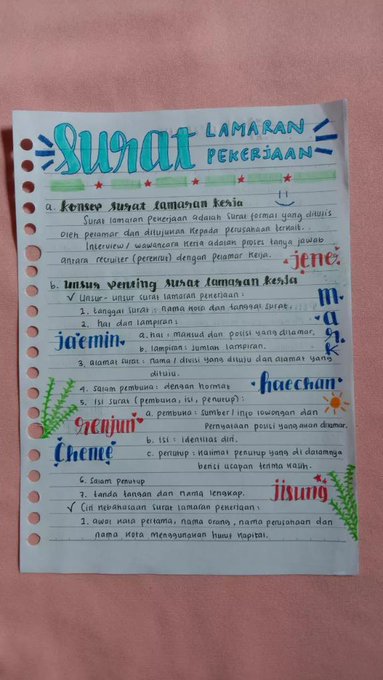 Surat LAMARAN PEKERJAAN
a. Konsep surat lamaran kerja
Surat lamaran pekerjaan adalah surat formal yang ditulis
oleh pelamar dan ditujukan kepada perusahaan terkait.
Interview / wawancara kerja adalah proses tanya jawab
antara recruiter (perekrut) dengan pelamar kerja.
jeno
b. Unsur penting surat lamaran kerja
✓ Unsur-unsur surat lamaran pekerjaan :
1. tanggal surat : nama kota dan tanggal surat.
mark
2. hal dan lampiran :
jaemin
a. hal : maksud dan posisi yang dilamar.
b. lampiran : jumlah lampiran.
3. alamat surat : nama / divisi yang dituju dan alamat yang
dituju.
4. Salam pembuka : dengan hormat
haechan
5. Isi surat (pembuka, isi, penutup) :
renjun
a. pembuka : sumber / info lowongan dan
Pernyataan posisi yang akan dilamar.
chenle
b. Isi : identitas diri.
c. penutup : kalimat penutup yang di dalamnya
berisi ucapan terima kasih.
6. Salam penutup
7. tanda tangan dan nama lengkap.
jisung
✓ Ciri kebahasaan surat lamaran pekerjaan :
1. awal kata pertama, nama orang, nama perusahaan dan
nama kota menggunakan huruf kapital.